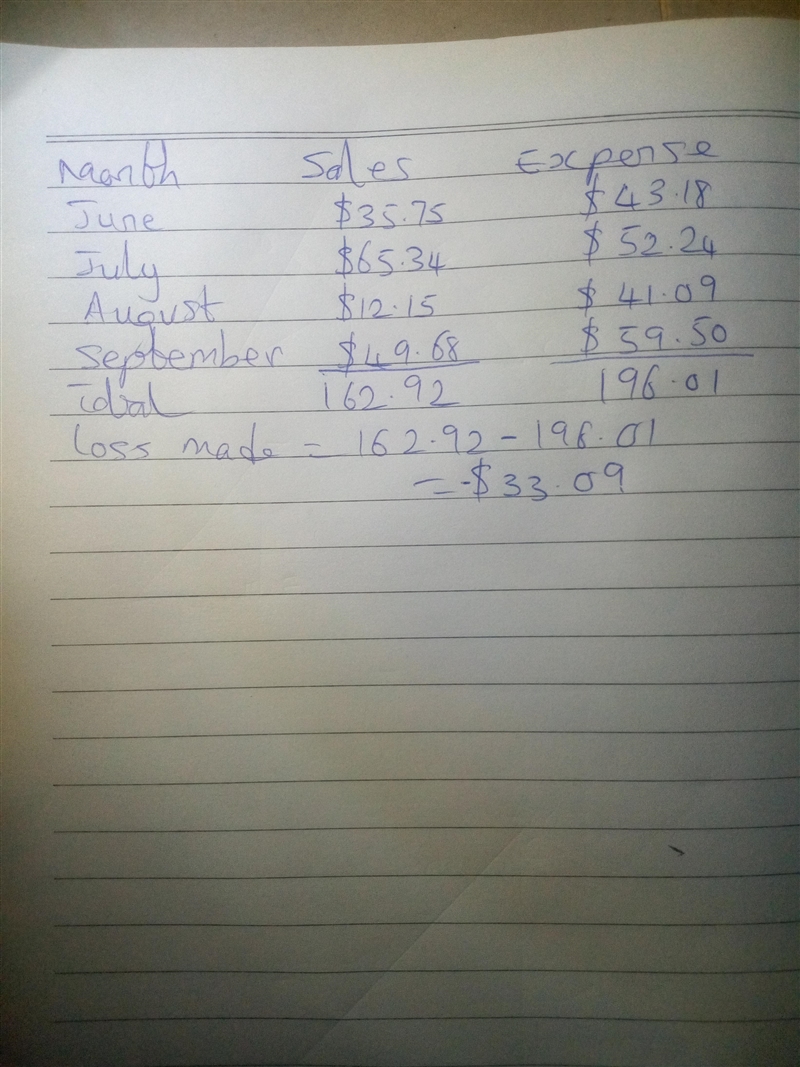 Month Sales Expense
June $35.75 $43.18
July $65.34 $52.24
August $12.15 $41.09
September $49.68 $59.50
Total 162.92 196.01
loss made = 162.92 - 196.01
= -$33.09